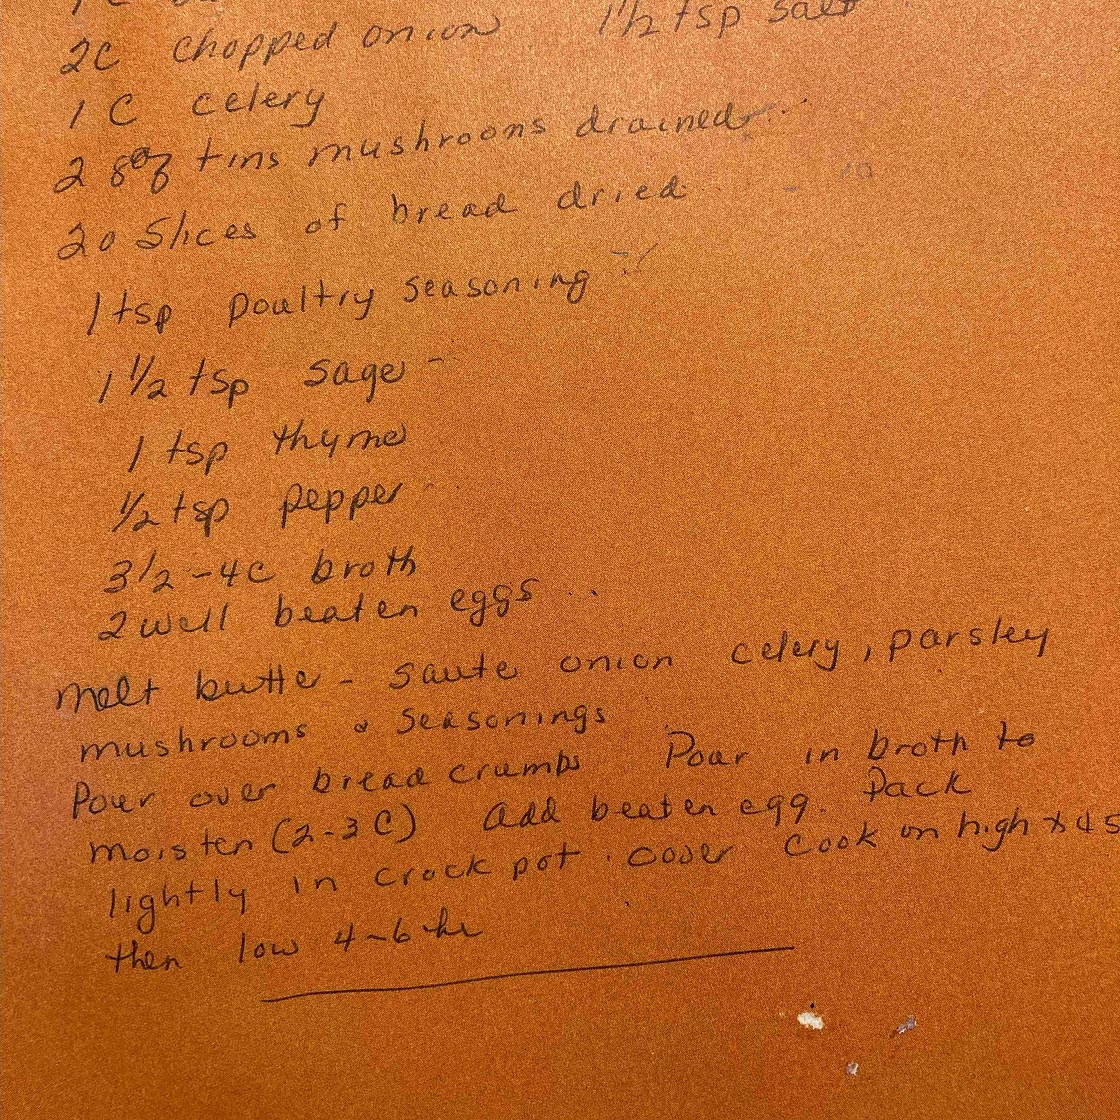 2C chopped onion 1 1/2 tsp salt
1 C celery
2 8oz tins mushrooms drained
20 Slices of bread dried
1 tsp poultry seasoning
1 1/2 tsp sage -
1 tsp thyme
1/2 tsp pepper
3 1/2 - 4C broth
2 well beaten eggs
Melt butter - saute onion celery, parsley
mushrooms & seasonings
Pour over bread crumbs Pour in broth to
moisten (2-3 C) Add beaten egg. Pack
lightly in crock pot. Cover Cook on high x 45
then low 4-6 hr